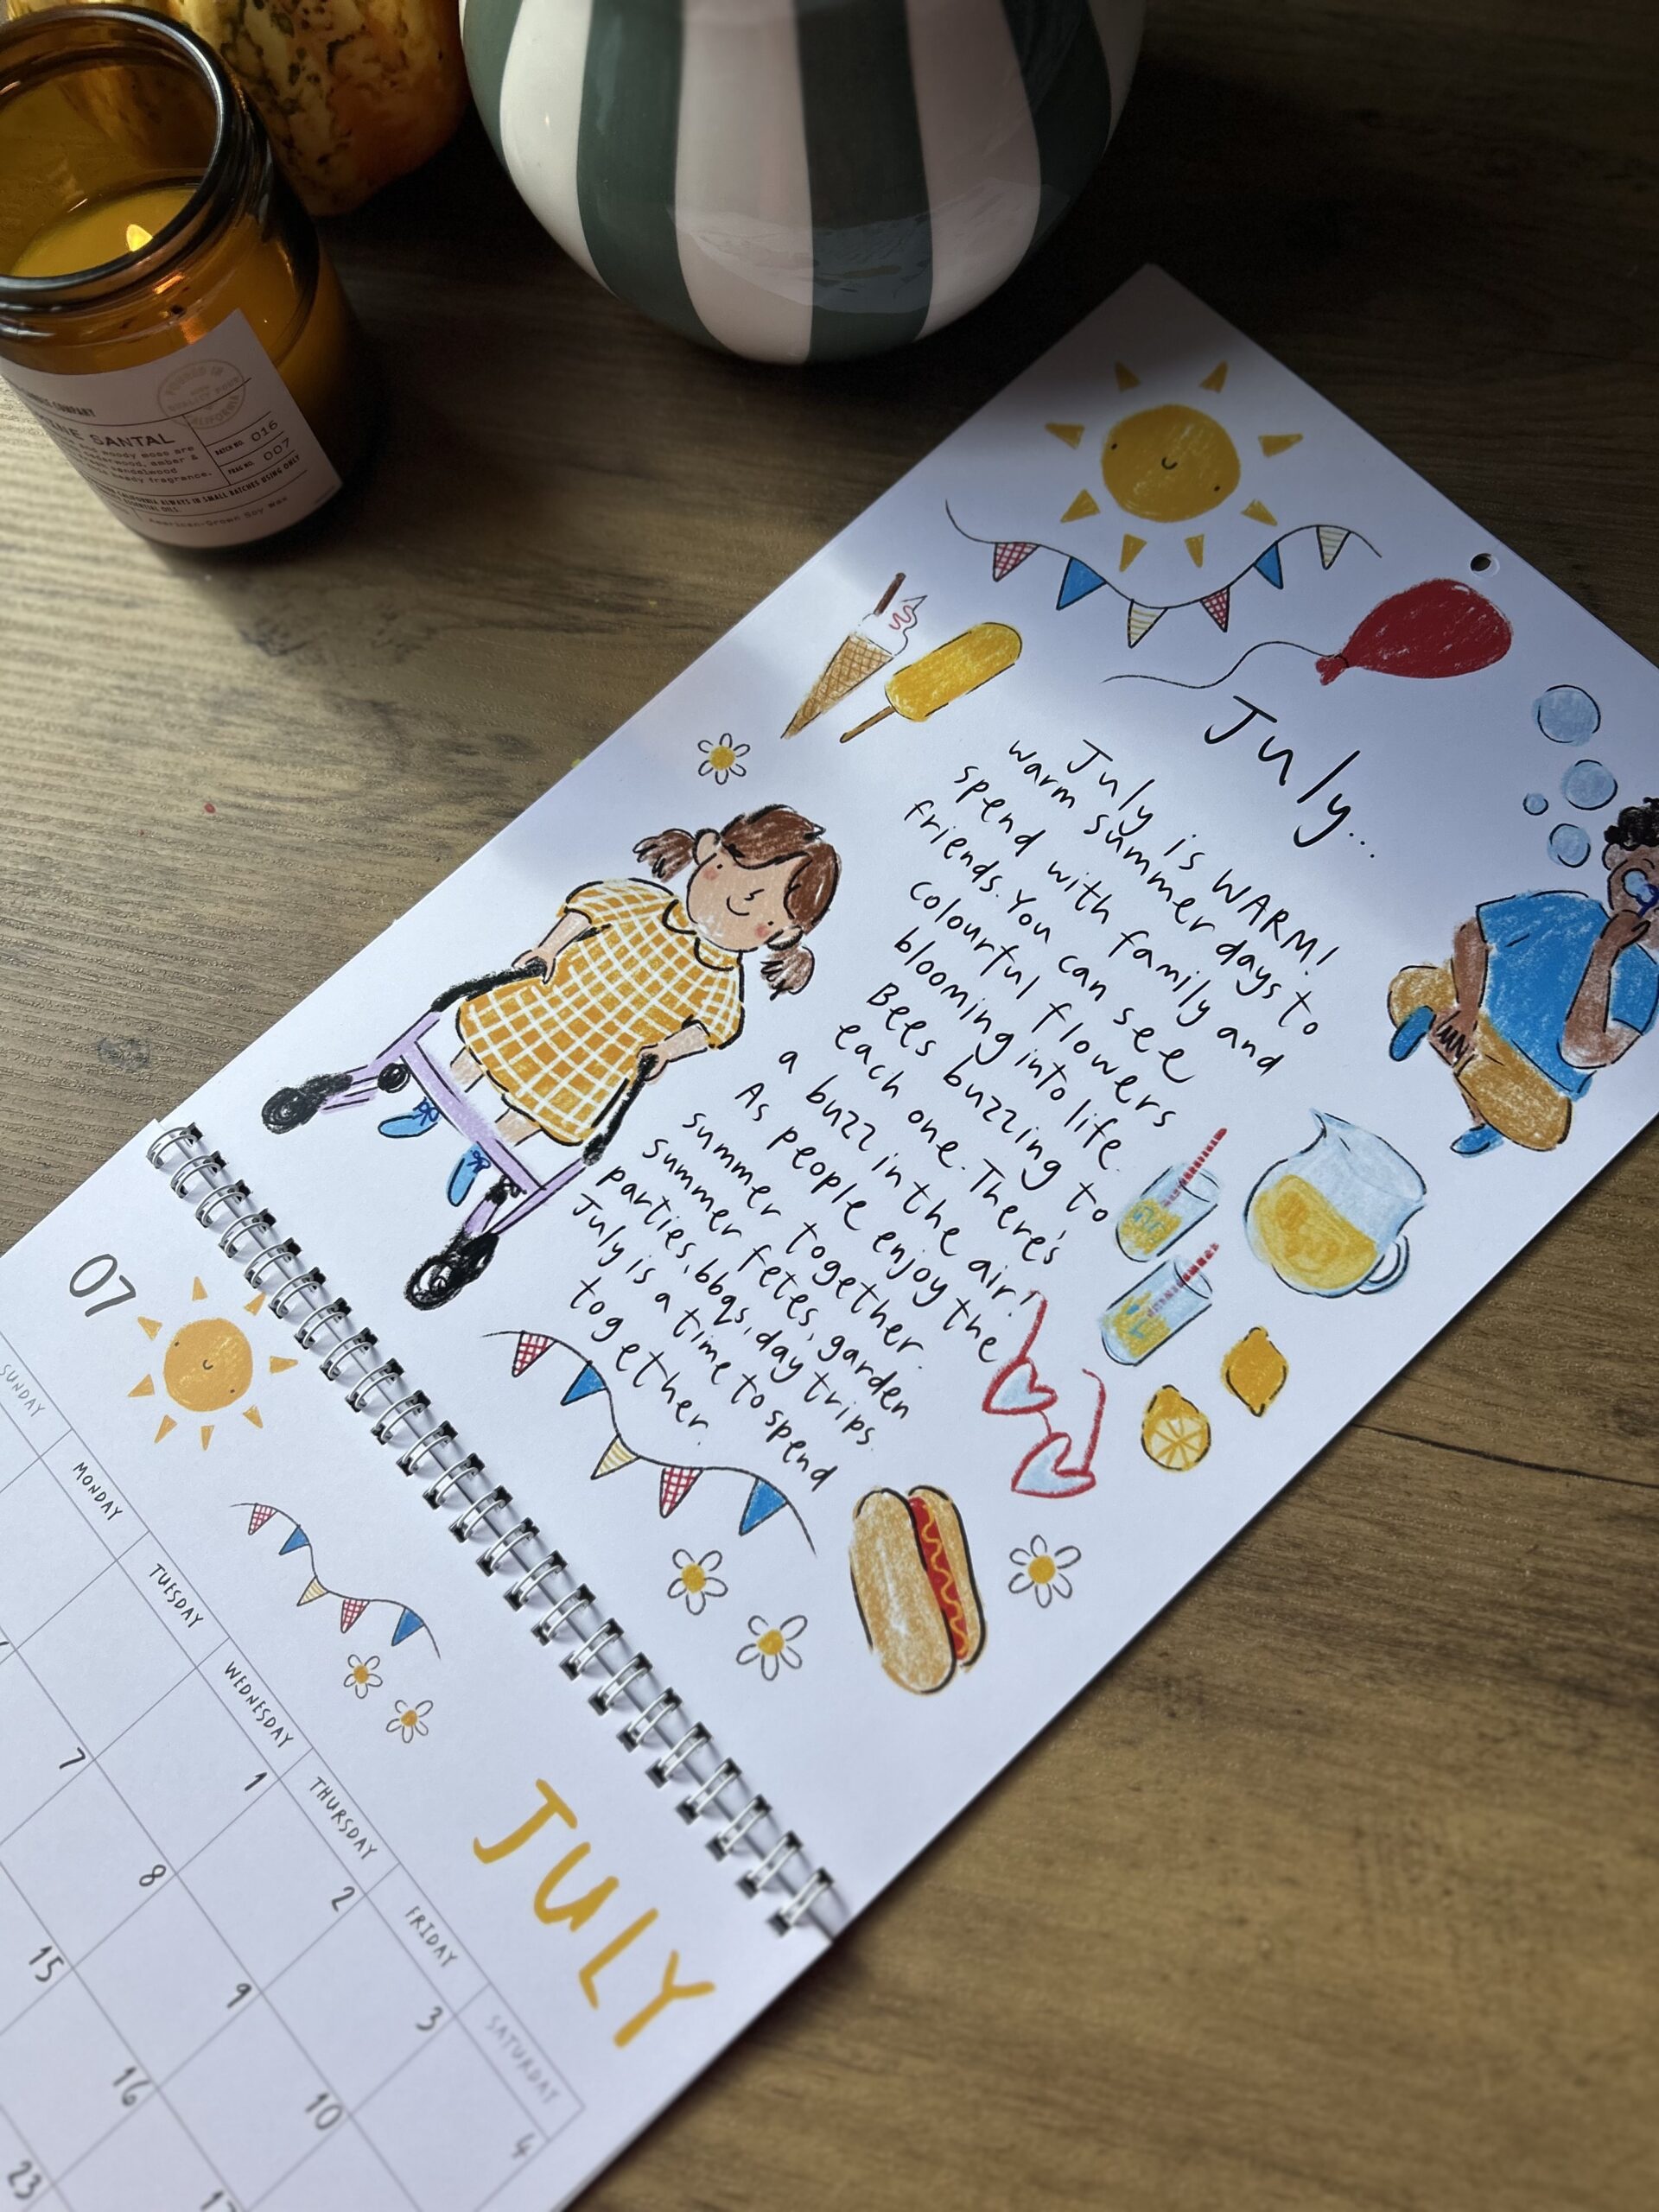 COMPANY
SANTAL
woody moss are
amber &
sandalwood
fragrance.
BATCH NO. 016
FRAG NO. 007
CALIFORNIA ALWAYS IN SMALL BATCHES USING ONLY
ESSENTIAL OILS.
American-Grown Soy Wax
POURED IN
CALIFORNIA
July...
July is WARM!
warm summer days to
spend with family and
friends. You can see
colourful flowers
blooming into life.
Bees buzzing to
each one. There's
a buzz in the air!
As people enjoy the
summer together.
summer fetes, garden
parties, bbqs, day trips.
July is a time to spend
together.
07
JULY
SUNDAY
MONDAY
TUESDAY
WEDNESDAY
THURSDAY
FRIDAY
SATURDAY
1
2
3
4
7
8
9
10
15
16
23